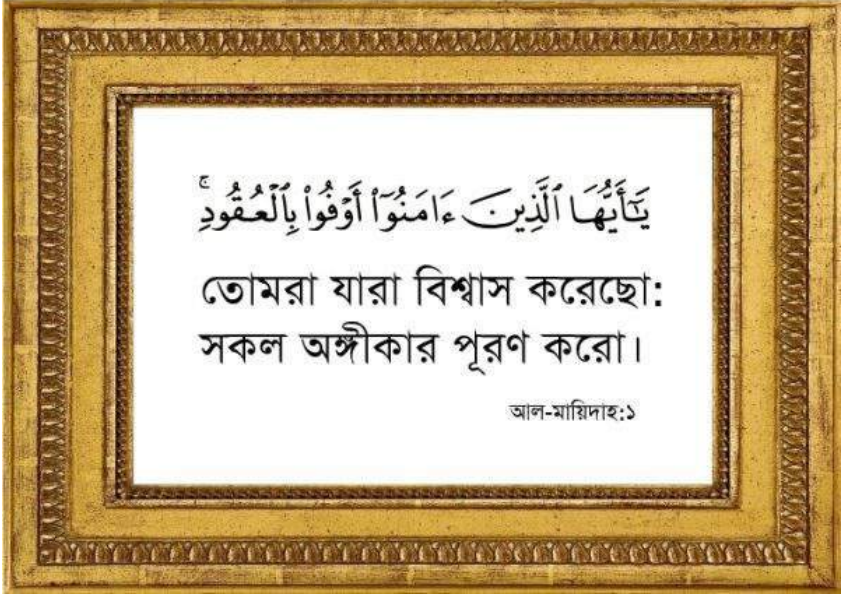 يَـٰٓأَيُّهَا ٱلَّذِينَ ءَامَنُوٓا۟ أَوْفُوا۟ بِٱلْعُقُودِ ۚ
তোমরা যারা বিশ্বাস করেছো:
সকল অঙ্গীকার পূরণ করো।
আল-মায়িদাহ:১